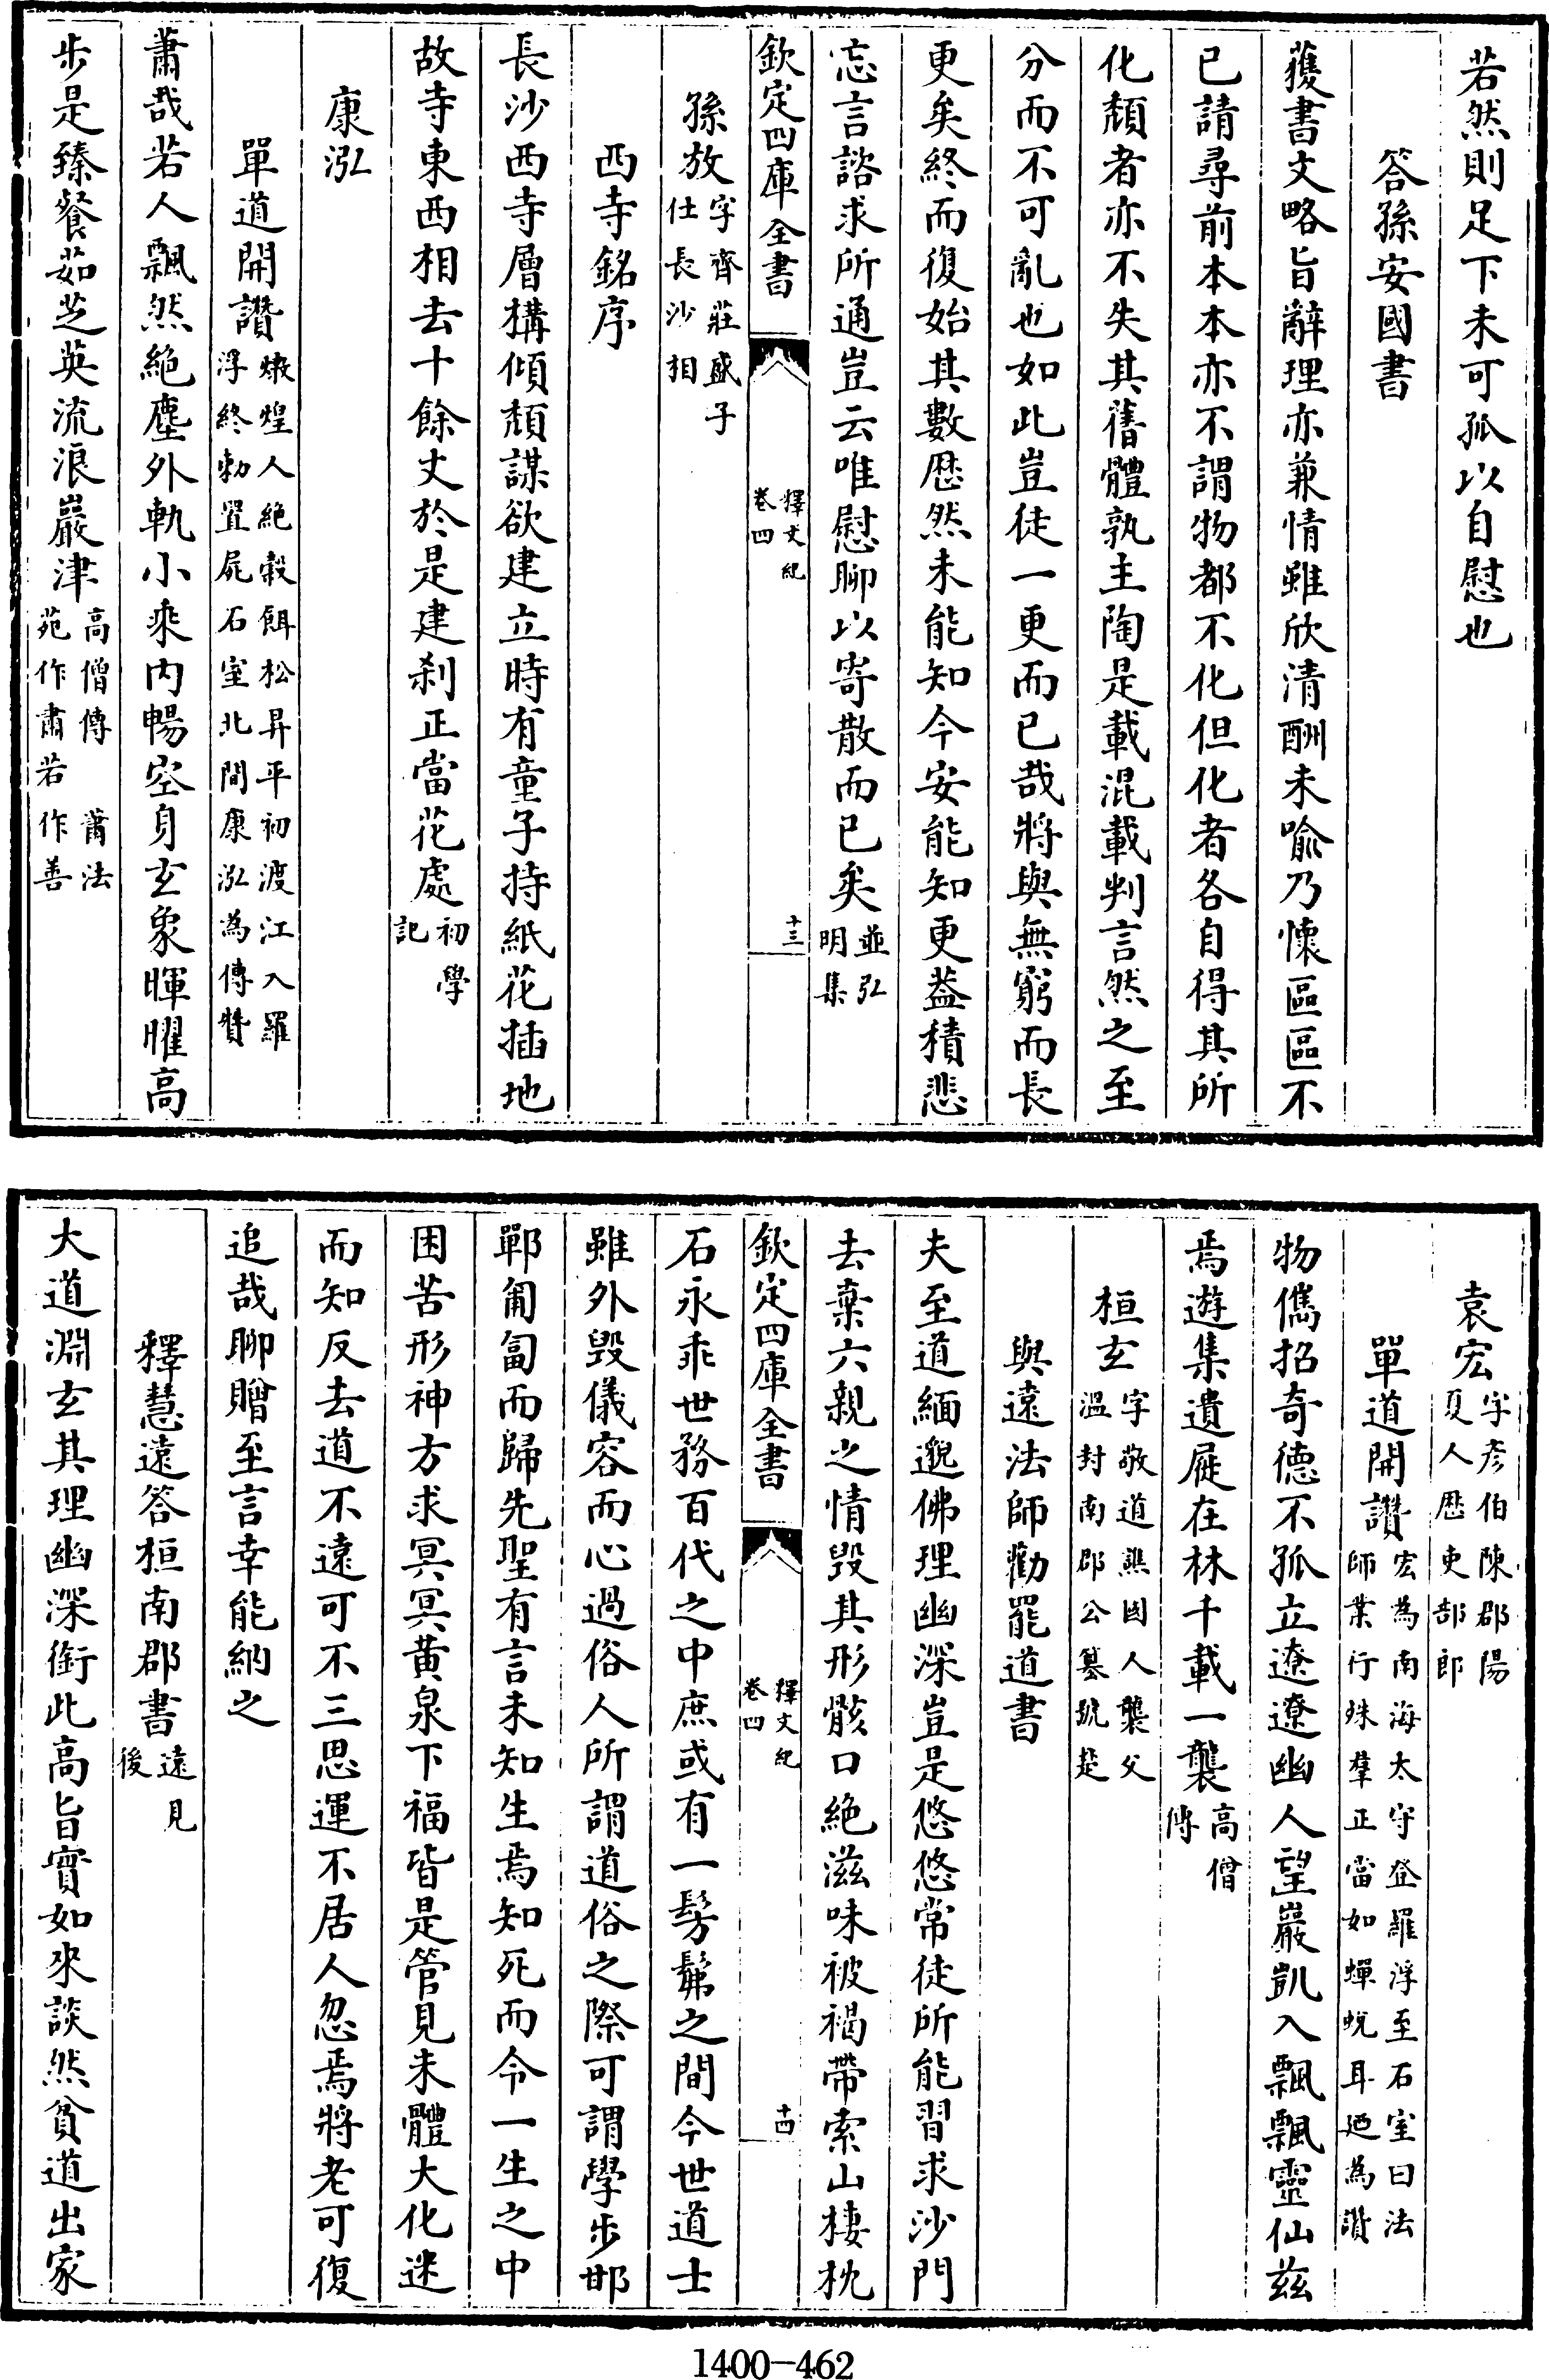 若然則足下未可孤以自慰也
答孫安國書
獲書文略旨辭理亦兼情雖欣清酬未喻乃懷區區不
已請尋前本本亦不謂物都不化但化者各自得其所
化頹者亦不失其舊體孰主陶是載混載判言然之至
分而不可亂也如此豈徒一更而已哉將與無窮而長
更矣終而復始其數厯然未能知今安能知更葢積悲
忘言諮求所通豈云唯慰聊以寄散而已矣並弘明集
欽定四庫全書 釋文紀卷四 十三
孫放字齊莊盛子仕長沙相
西寺銘序
長沙西寺層構傾頹謀欲建立時有童子持紙花插地
故寺東西相去十餘丈於是建刹正當花處初學記
康泓
單道開讚燉煌人絶穀餌松昇平初渡江入羅浮終勅置屍石室北間康泓為傳贊
蕭哉若人飄然絶塵外軌小乘内暢空身玄象暉曜高
步是臻餐茹芝英流浪巖津高僧傳 蕭法苑作肅若作善
袁宏字彦伯陳郡陽夏人厯吏部郎
單道開讚宏為南海太守登羅浮至石室曰法師業行殊羣正當如蟬蛻耳廼為讚
物儁招奇德不孤立遼遼幽人望巖凱入飄飄靈仙兹
焉遊集遺屣在林千載一襲高僧傳
桓玄字敬道譙國人襲父温封南郡公簒號楚
與遠法師勸罷道書
夫至道緬邈佛理幽深豈是悠悠常徒所能習求沙門
去棄六親之情毁其形骸口絶滋味被褐帶索山棲枕
欽定四庫全書 釋文紀卷四 十四
石永乖世務百代之中庶或有一髣髴之間今世道士
雖外毁儀容而心過俗人所謂道俗之際可謂學步邯
鄲匍匐而歸先聖有言未知生焉知死而令一生之中
困苦形神方求冥冥黄泉下福皆是管見未體大化迷
而知反去道不遠可不三思運不居人忽焉將老可復
追哉聊贈至言幸能納之
釋慧遠答桓南郡書遠見後
大道淵玄其理幽深銜此高旨實如來談然貧道出家
1400-462